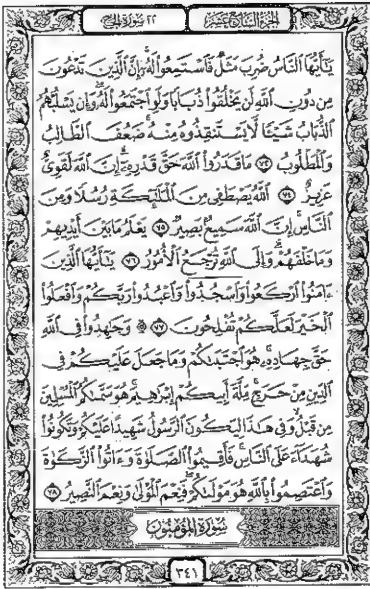 الجزء السابع عشر ٢٢ سورة الحج
يَٰٓأَيُّهَا ٱلنَّاسُ ضُرِبَ مَثَلٞ فَٱسۡتَمِعُواْ لَهُۥٓۚ إِنَّ ٱلَّذِينَ تَدۡعُونَ
مِن دُونِ ٱللَّهِ لَن يَخۡلُقُواْ ذُبَابٗا وَلَوِ ٱجۡتَمَعُواْ لَهُۥۖ وَإِن يَسۡلُبۡهُمُ
ٱلذُّبَابُ شَيۡـٔٗا لَّا يَسۡتَنقِذُوهُ مِنۡهُۚ ضَعُفَ ٱلطَّالِبُ
وَٱلۡمَطۡلُوبُ ٧٣ مَا قَدَرُواْ ٱللَّهَ حَقَّ قَدۡرِهِۦٓۚ إِنَّ ٱللَّهَ لَقَوِيٌّ
عَزِيزٌ ٧٤ ٱللَّهُ يَصۡطَفِي مِنَ ٱلۡمَلَٰٓئِكَةِ رُسُلٗا وَمِنَ
ٱلنَّاسِۚ إِنَّ ٱللَّهَ سَمِيعُۢ بَصِيرٞ ٧٥ يَعۡلَمُ مَا بَيۡنَ أَيۡدِيهِمۡ
وَمَا خَلۡفَهُمۡۚ وَإِلَى ٱللَّهِ تُرۡجَعُ ٱلۡأُمُورُ ٧٦ يَٰٓأَيُّهَا ٱلَّذِينَ
ءَامَنُواْ ٱرۡكَعُواْ وَٱسۡجُدُواْۤ وَٱعۡبُدُواْ رَبَّكُمۡ وَٱفۡعَلُواْ
ٱلۡخَيۡرَ لَعَلَّكُمۡ تُفۡلِحُونَ۩ ٧٧ وَجَٰهِدُواْ فِي ٱللَّهِ
حَقَّ جِهَادِهِۦۚ هُوَ ٱجۡتَبَىٰكُمۡ وَمَا جَعَلَ عَلَيۡكُمۡ فِي
ٱلدِّينِ مِنۡ حَرَجٖۚ مِّلَّةَ أَبِيكُمۡ إِبۡرَٰهِيمَۚ هُوَ سَمَّىٰكُمُ ٱلۡمُسۡلِمِينَ
مِن قَبۡلُ وَفِي هَٰذَا لِيَكُونَ ٱلرَّسُولُ شَهِيدًا عَلَيۡكُمۡ وَتَكُونُواْ
شُهَدَآءَ عَلَى ٱلنَّاسِۚ فَأَقِيمُواْ ٱلصَّلَوٰةَ وَءَاتُواْ ٱلزَّكَوٰةَ
وَٱعۡتَصِمُواْ بِٱللَّهِ هُوَ مَوۡلَىٰكُمۡۖ فَنِعۡمَ ٱلۡمَوۡلَىٰ وَنِعۡمَ ٱلنَّصِيرُ ٧٨
سُورَةُ المُؤْمِنُونَ
٣٤١